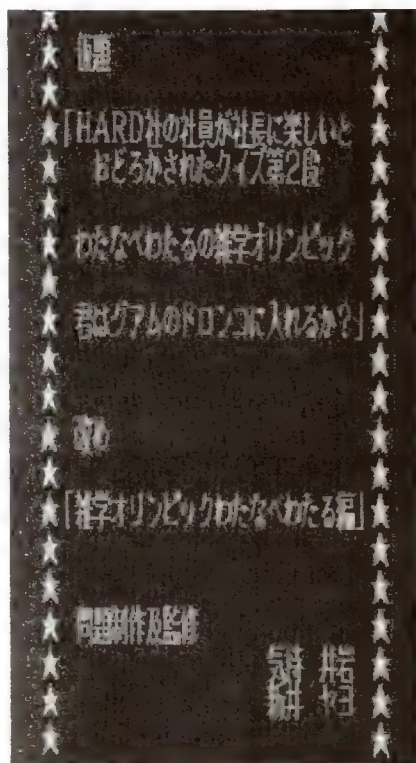 「HARD社の社員が社長に楽しいと
おどろかされたクイズ第2段
わたなべわたるの雑学オリンピック
君はグアムのドロンコに入れるか?」
改め
「雑学オリンピックわたなべわたる編」